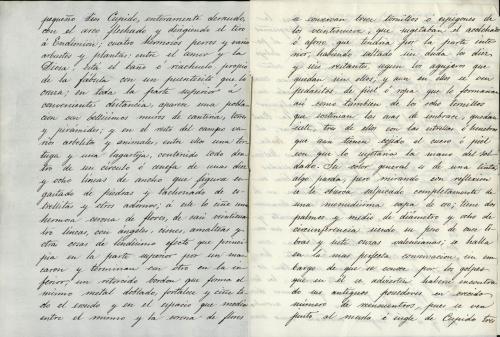 pequeño dios Cupido, enteramente desnudo,
con el arco flechado y dirigiendo el tiro
á Endimion; cuatro hermosos perros y varios
arbustos y plantas; entre el amor y la
Diosa está el lago ó riachuelo propio
de la fábula con un puentecito que lo
cruza; en toda la parte superior á
conveniente distancia, aparece una pobla-
cion con bellísimos muros de cantina, torres
y piramides; y en el resto del campo va-
rios arbolitos y animales, entre ellos una tor-
tuga y una lagartija, contenido todo den-
tro de un círculo ó cenefa de unas diez
y ocho líneas de ancho que figura en-
gastado de piedras y tachonado de es-
trellitas y otros adornos; á este lo ciñe una
hermosa corona de flores, de seis veinticua-
tro líneas, con ángeles, cisnes, amalteas y
otras cosas de lindísimo efecto que princi-
pia en la parte superior por un mas-
caron y terminan con otro en la in-
ferior; un retorcido bordon que forma el
mismo metal doblado, fortalece y ciñe to-
do el escudo y en el espacio que media
entre el mismo y la corona de flores
se conservan trece tornillos ó espigones de
los veintinueve, que sujetaban el acolchado
ó aforro que tendría por la parte inte-
rior, habiendo saltado sin duda los diez
y seis restantes, segun los agujeros que
quedan sin ellos, y aun en estos se ven
pedacitos de piel ó ropa que lo formarian
así como tambien de los ocho tornillos
que sostenian las asas de embrace, quedan
siete, tres de ellos con las estrellas ó
que aun tienen cogido el cuero ó piel
con que lo sujetaba la mano del sol-
dado. Su color general es de una tinta
algo parda, pero mirando con reflexion
se le observa salpicado completamente de
una menudísima capa de oro; tiene dos
palmos y medio de diámetro y ocho de
circunferencia siendo su peso de once li-
bras y siete onzas valencianas; se halla
en la mas perfecta conservacion, sin em-
bargo de que se conoce por los golpes
que en él se advierten haberse encontrado
de sus antiguos poseedores en crecido
número de reencuentros, pues se ven
junto al muslo é ingle de Cupido tres